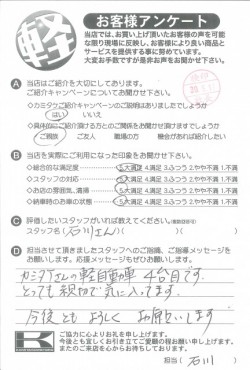 軽
お客様アンケート
当店では、お買い上げ頂いたお客様の声を可能
な限り現場に反映し、お客様により良い商品と
サービスを提供する事に努めています。
大変お手数ですが是非お声をお聞かせ下さい。
A 当店はご紹介を大切にしてあります。
ご紹介キャンペーンについてお聞かせ下さい。
・カミタケご紹介キャンペーンのご説明はありましたでしょうか
はい いいえ
・具体的にご紹介頂ける方とのご関係をお聞かせ頂けますでしょうか
ご親族 ご友人 職場の方 機会があれば紹介したい
B 当店を実際にご利用になった印象をお聞かせ下さい。
・総合的な満足度 5.大満足 4.満足 3.ふつう 2.やや不満 1.不満
・スタッフの対応 5.大満足 4.満足 3.ふつう 2.やや不満 1.不満
・お店の雰囲気、清掃 5.大満足 4.満足 3.ふつう 2.やや不満 1.不満
・納車時のお車の状態 5.大満足 4.満足 3.ふつう 2.やや不満 1.不満
C 評価したいスタッフがいれば教えてください。(複数回答可)
スタッフ名(石川さん)( )( )
D 担当させて頂きましたスタッフへのご指摘、ご指導メッセージを
お願いします。応援メッセージもぜひお願いします。
カミタケさんの軽自動車 4台目です。
とっても親切で気に入ってます。
今後とも よろしく お願いします
K
ご協力に心よりお礼を申し上げます。
今後とも宜しくお引き立てご愛顧の程お願い申し上げます。
またのご来店を心からお待ちしております。
担当(石川)